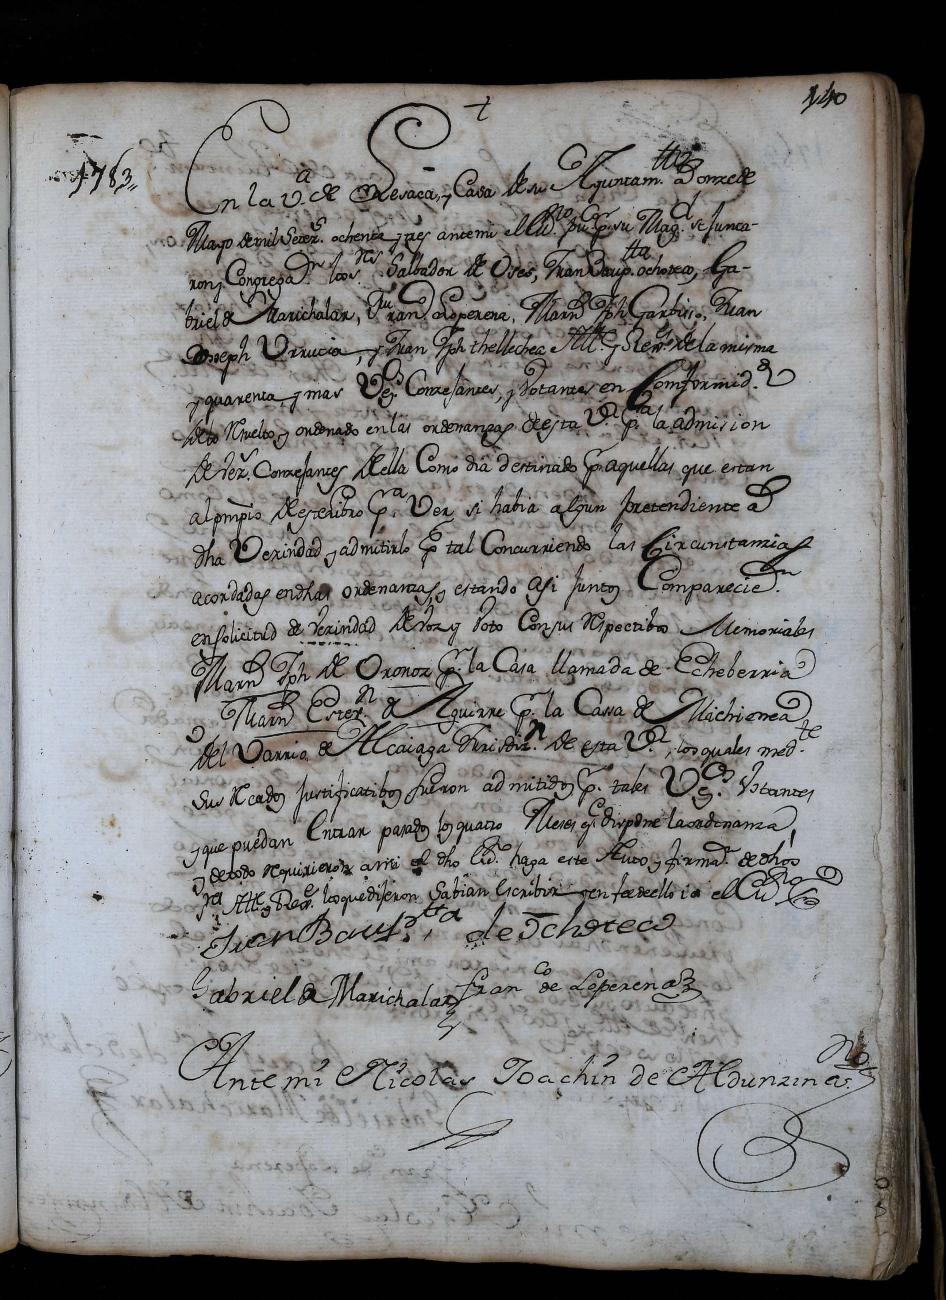 140
1783,,
En la V.a de Lesaca, y Casa de su Ayuntam.tto a onze de
Mayo de mil Setez.s ochenta y tres ante mi el Ess.no pu.co p.r su Mag.d se junta-
ron y Congrega.Dn los s.res Salbador de Oses, Juan Baup.tta ochoteco, Ga-
briel de Marichalar, Fran.co Leperena, Marn Jph Garbiso, Juan
Joseph Urrucia, y Juan Jph thellechea Alt.e y Rex.s de la misma
y quarenta y mas V.os Concejantes, y Votantes en Comformid.d
de lo resuelto, y ordenado en las ordenanzas de esta V.a p.a la admision
de Vez.s Concejantes de ella Como dia destinado p.r aquellas que estan
al prnpio de este libro p.a Ver si habia algun pretendiente a
dha Vezindad y admitirlo p.r tal Concurriendo las Circunstanzias
acordadas en dhas ordenanzas, y estando asi juntos Comparecie.n
en solicitud de Vezindad de Voz y Voto Con sus respectibos Memoriales
Marn Jph de Oronoz p.r la Casa llamada de Echeberria
y Marn Estev.n de Aguirre p.r la Cassa de Michienea
del Varrio de Alcaiaga Jurisdiz.n de esta V.a, los quales med.te
sus recados justificatibos fueron admitidos p.r tales V.os Votantes
y que puedan Entrar pasados los quatro Meses q.e dispone la ordenanza
y de todo requirieron a mi el dho Ess.no haga este Auto, y firma.n de dhos
s.res Alt.e y Rex.s los que dijeron Sabian escribir y en fee de ello io el Ess.no
Juan Baup.tta de Ochoteco
Gabriel de Marichalar Fran.co de Leperena
Ante mi Nicolas Joachin de Aldunzin es.no